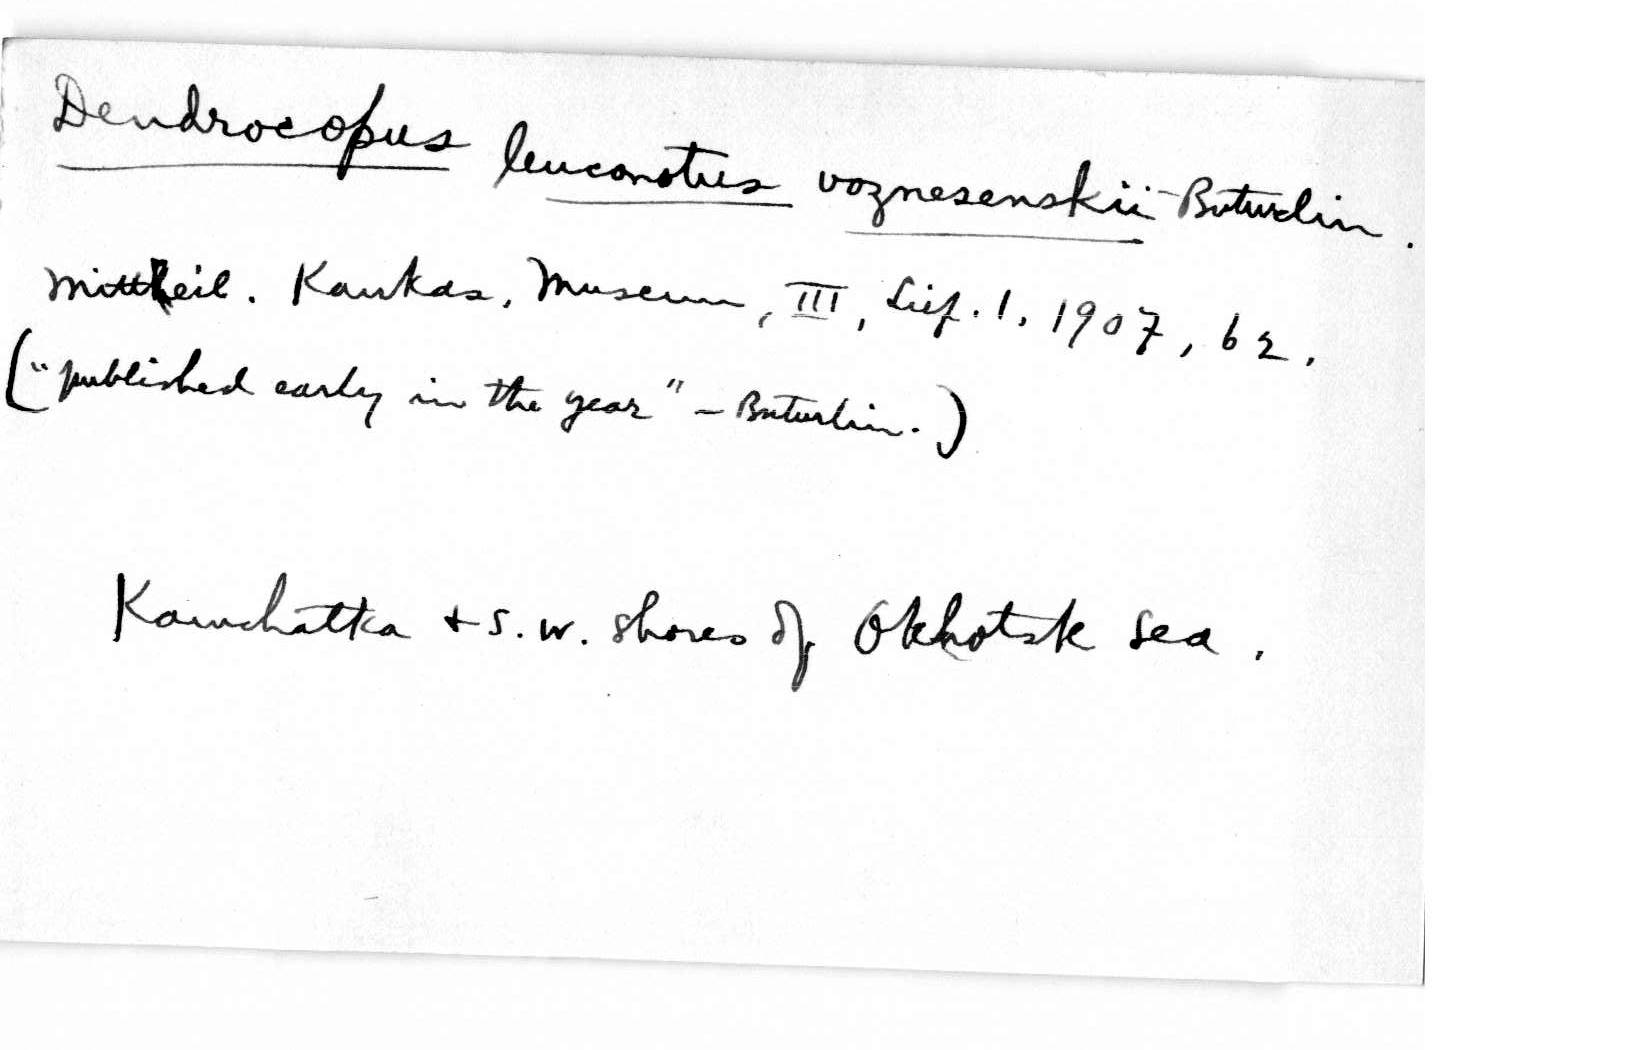 Dendrocopus leuconotus voznesenskii Buturlin.
Mittheil. Kaukas. Museum, III, Lief. 1, 1907, 62.
("published early in the year" – Buturlin.)
Kamchatka + S. W. shores of Okhotsk Sea.